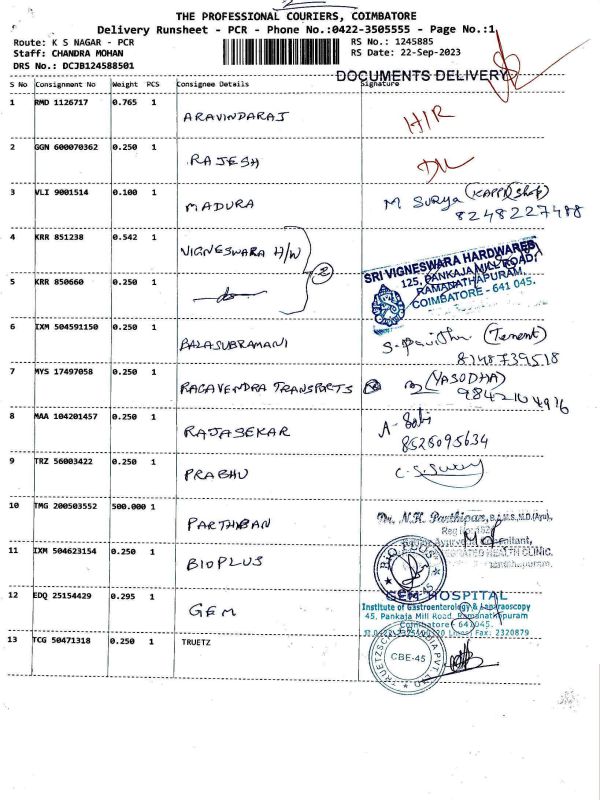 THE PROFESSIONAL COURIERS, COIMBATORE
Delivery Runsheet - PCR - Phone No.:0422-3505555 - Page No.:1
Route: K S NAGAR - PCR RS No.: 1245885
Staff: CHANDRA MOHAN RS Date: 22-Sep-2023
DRS No.: DCJB124588501
DOCUMENTS DELIVERY
S No Consignment No Weight PCS Consignee Details Signature
1 RMD 1126717 0.765 1 ARAVINDARAJ H/R
2 GGN 600070362 0.250 1 RAJESH
3 VLI 9001514 0.100 1 MADURA M SURYA (KAPPI shop)
8248227488
4 KRR 851238 0.542 1 VIGNESWARA H/W
SRI VIGNESWARA HARDWARES
125, PANKAJA MILL ROAD,
RAMANATHAPURAM,
COIMBATORE - 641 045.
5 KRR 850660 0.250 1 2
6 IXM 504591150 0.250 1 BALASUBRAMANI S. Pavithra (Tenent)
8748739518
7 MYS 17497058 0.250 1 RAGAVENDRA TRANSPORTS (YASODHA)
9842104916
8 MAA 104201457 0.250 1 RAJASEKAR A- Sabi
8526095634
9 TRZ 56003422 0.250 1 PRABHU
10 TMG 200503552 500.000 1 PARTHIBAN
Dr. N.K. Parthipan, B.A.M.S., M.D.(Ayu).,
11 IXM 504623154 0.250 1 BIOPLUS
BIO PLUS
CBE-45
12 EDQ 25154429 0.295 1 GEM
GEM HOSPITAL
Institute of Gastroenterology & Laparaoscopy
45, Pankaja Mill Road, Ramanathapuram
Coimbatore - 641 045.
Fax: 2320879
13 TCG 50471318 0.250 1 TRUETZ
CBE-45